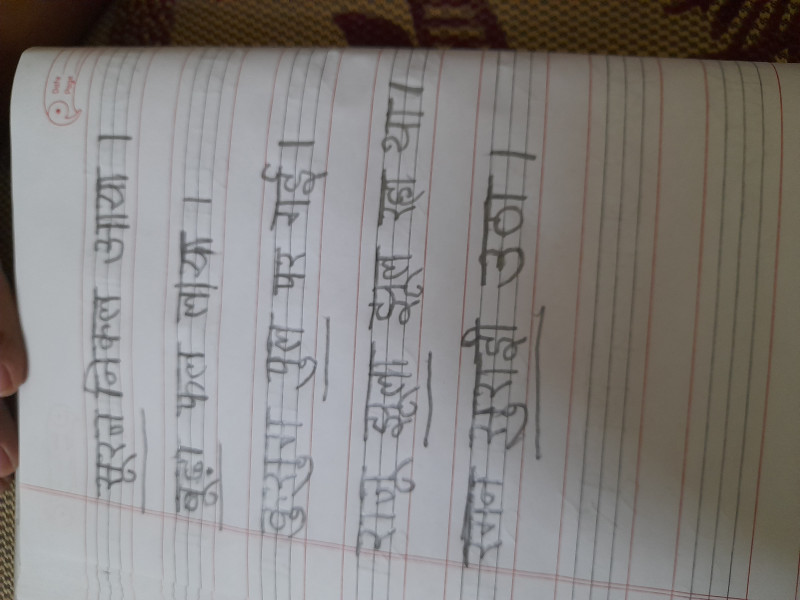 Date
Page
सूरज निकल आया ।
बूढ़ा फल लाया ।
कुसुम पुल पर गई ।
राजू झूला झूल रहा था ।
सुराही उठा ।